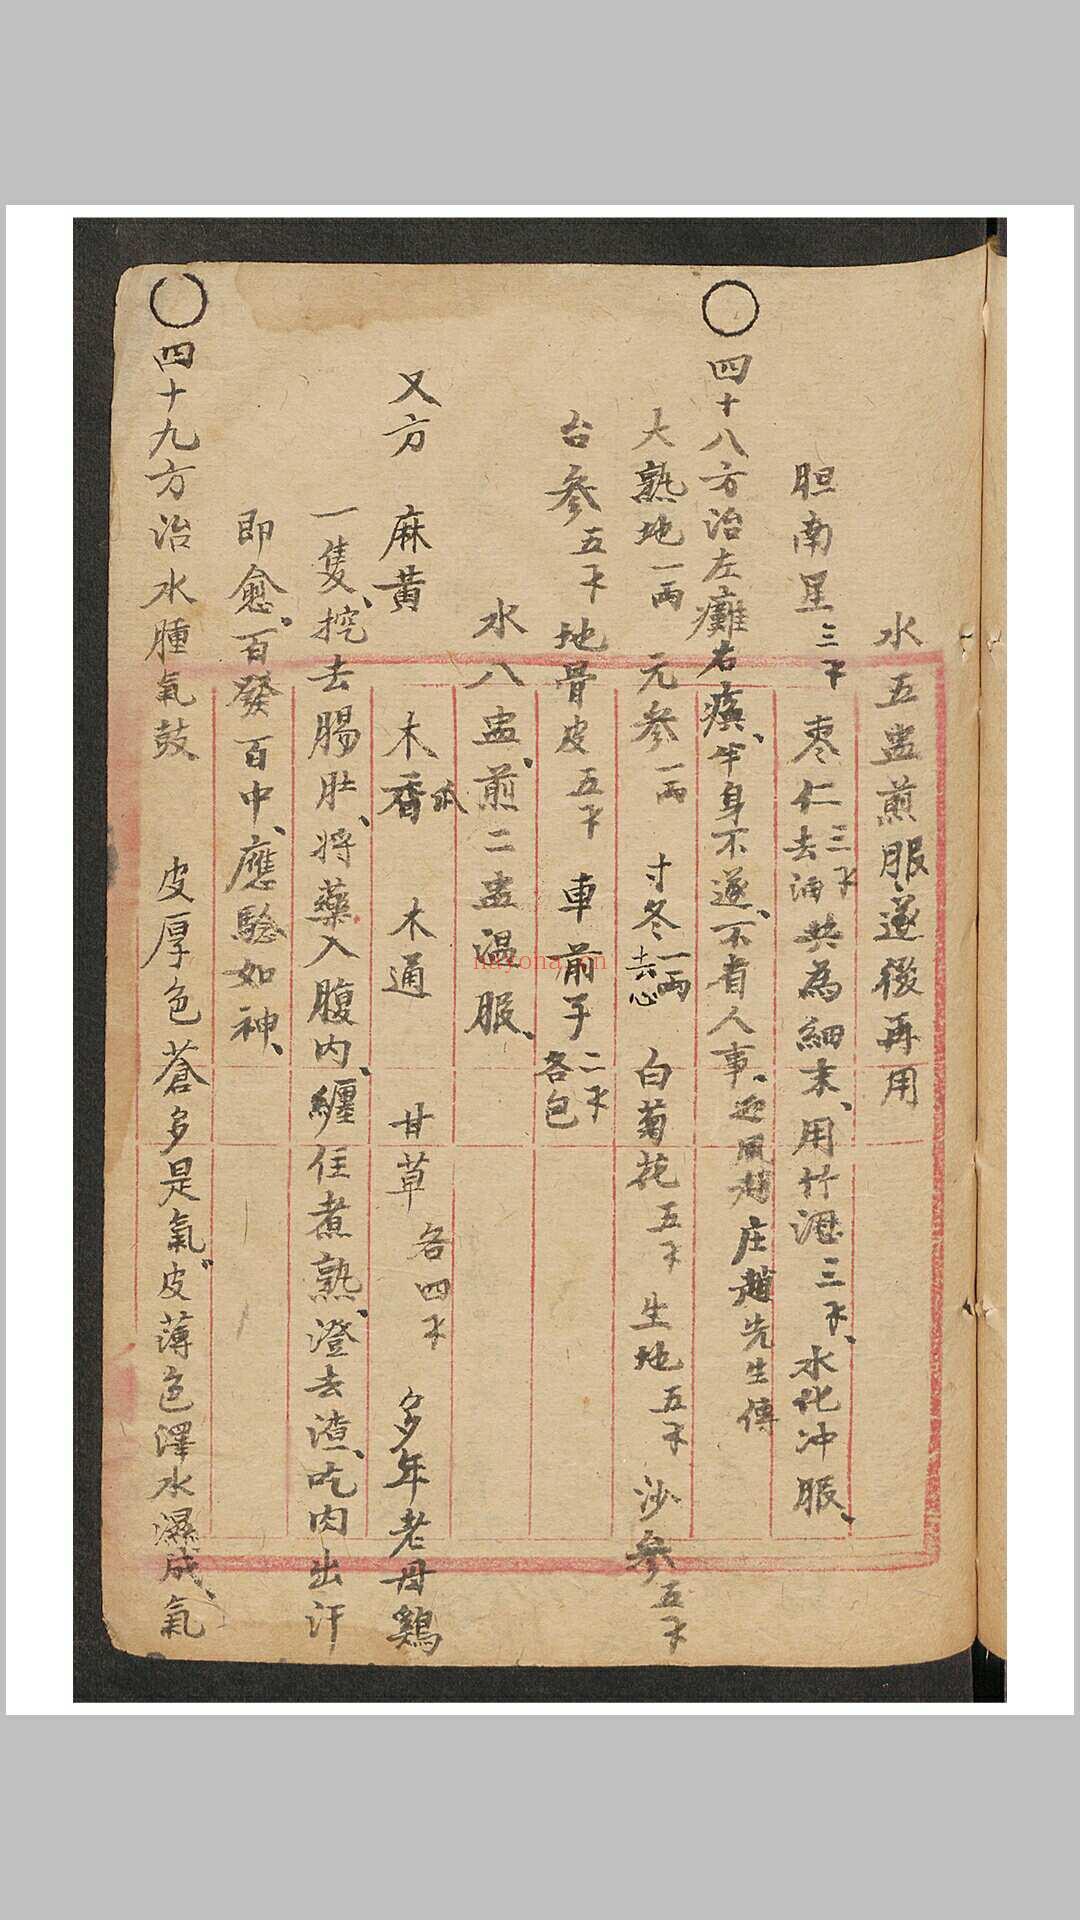 水五盅煎服、遂後再用
胆南星三个 枣仁三个去油 共為細末、用竹瀝三个、水化冲服、
○四十八方治左癱右瘓、半身不遂、不省人事、迎風趙庄趙先生傳
大熟地一兩 元参一兩 寸冬一兩去心 白菊花五个 生地五个 沙参五个
台参五个 地骨皮五个 車前子二个各包
水八盅、煎二盅温服、
又方 麻黄 木香 木通 甘草 各四个 多年老母鷄
一隻、挖去腸肚、将藥入腹内、纏住煮熟、澄去渣、吃肉出汗
即愈、百發百中、應驗如神、
○四十九方治水腫氣鼓 皮厚色蒼多是氣、皮薄色澤水濕成、氣
nayona.cn